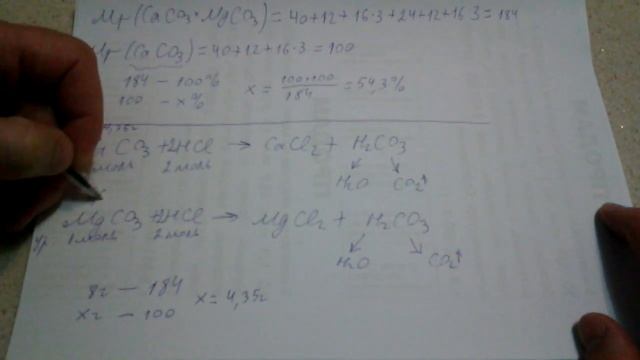 Mr(CaCO3·MgCO3) = 40+12+16·3+24+12+16·3=184
Mr(CaCO3) = 40+12+16·3 = 100
184 — 100%
100 — x%
x = 100·100/184 = 54,3%
CO3 + 2HCl → CaCl2 + H2CO3
2 моль
H2O CO2↑
MgCO3 + 2HCl → MgCl2 + H2CO3
1 моль 2 моль
H2O CO2↑
8г — 184
xг — 100
x = 4,35г